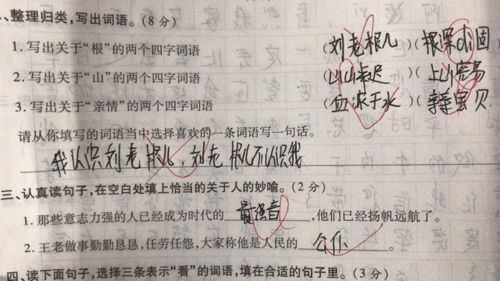 、整理归类,写出词语。(8分)
1. 写出关于“根”的两个四字词语 (刘老根儿)(根深di固
2. 写出关于“山”的两个四字词语 (山山来迟)(上山容易
3. 写出关于“亲情”的两个四字词语 (血浓于水)(亲亲宝贝
请从你填写的词语当中选择喜欢的一条词语写一句话。
我认识刘老根儿,刘老根儿不认识我
三、认真读句子,在空白处填上恰当的关于人的妙喻。(2分)
1. 那些意志力强的人已经成为时代的 最强音 ,他们已经扬帆远航了。
2. 王老做事勤勤恳恳,任劳任怨,大家称他是人民的 公仆 。
四、读下面句子,选择三条表示“看”的词语,填在合适的句子里。(3分)